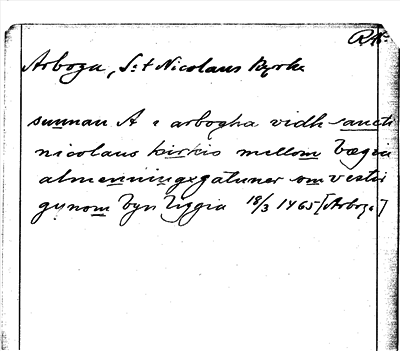 RAp.
Arboga, S:t Nicolaus Kyrka
sunnan A i arbogha vidh sancti
nicolaus kirkio mellom bægia
almenningxgatuner om vestir
gynom byn liggia 18/3 1465 [Arboga]